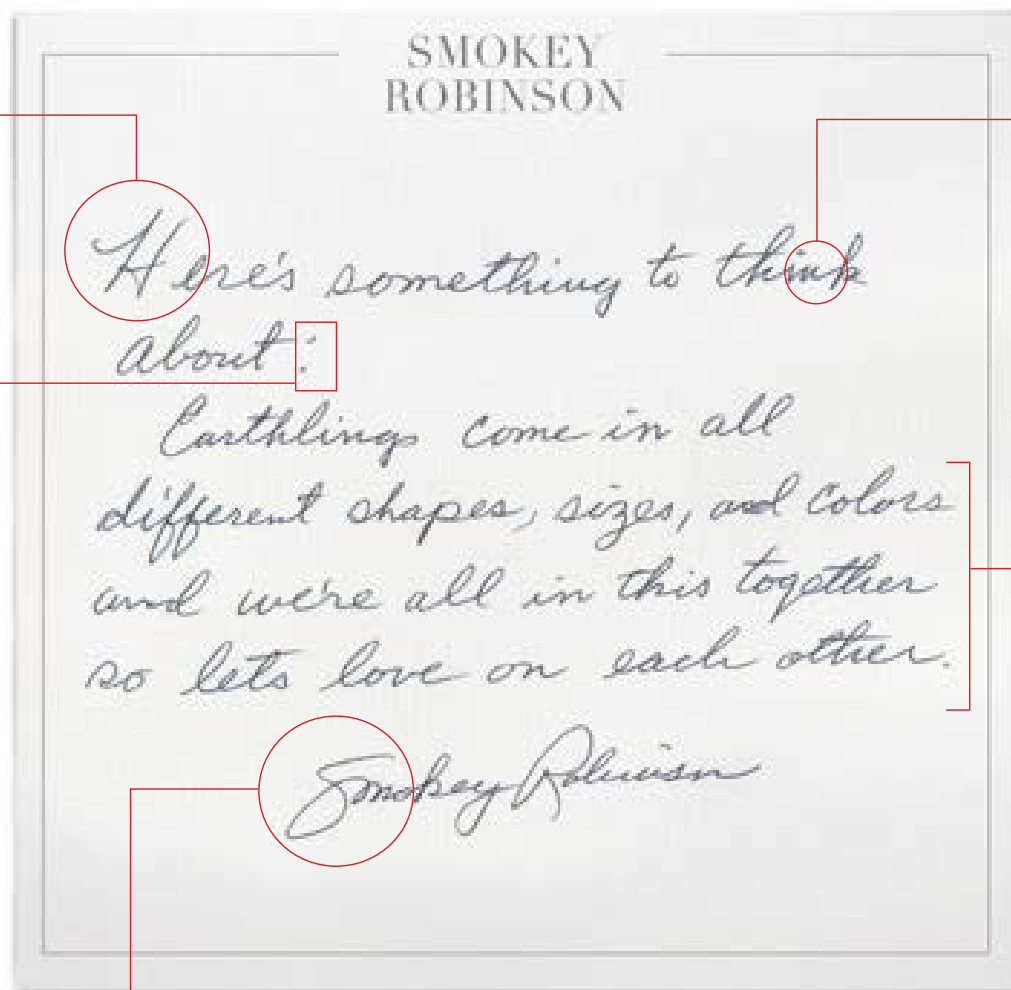 SMOKEY
ROBINSON
Here's something to think
about:
Earthlings come in all
different shapes, sizes, and colors
and we're all in this together
so lets love on each other.
Smokey Robinson